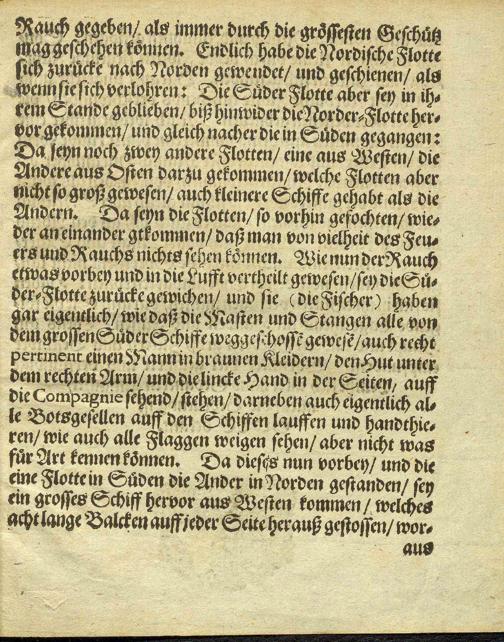 Rauch gegeben/ als immer durch die grössesten Geschütz
mag geschehen können. Endlich habe die Nordische Flotte
sich zurücke nach Norden gewendet/ und geschienen/ als
wenn sie sich verlohren: Die Süder Flotte aber sey in ih-
rem Stande geblieben/ biß hinwider die Norder-Flotte her-
vor gekommen/ und gleich nacher die in Süden gegangen:
Da seyn noch zwey andere Flotten/ eine aus Westen/ die
Andere aus Osten darzu gekommen/ welche Flotten aber
nicht so groß gewesen/ auch kleinere Schiffe gehabt als die
Andern. Da seyn die Flotten/ so vorhin gefochten/ wie-
der an einander gtkommen/ daß man von vielheit des Feu-
ers und Rauchs nichts sehen können. Wie nun der Rauch
etwas vorbey und in die Lufft vertheilt gewesen/ sey die Sü-
der-Flotte zurücke gewichen/ und sie (die Fischer) haben
gar eigentlich/ wie daß die Masten und Stangen alle von
dem grossen Süder Schiffe weggeschossē gewesē/ auch recht
pertinent einen Mann in braunen Kleidern/ den Hut unter
dem rechten Arm/ und die lincke Hand in der Seiten/ auff
die Compagnie sehend/ stehen/ darneben auch eigentlich al-
le Botsgesellen auff den Schiffen lauffen und handthie-
ren/ wie auch alle Flaggen weigen sehen/ aber nicht was
für Art kennen können. Da dieses nun vorbey/ und die
eine Flotte in Süden die Ander in Norden gestanden/ sey
ein grosses Schiff hervor aus Westen kommen/ welches
acht lange Balcken auff jeder Seite herauß gestossen/ wor-
aus